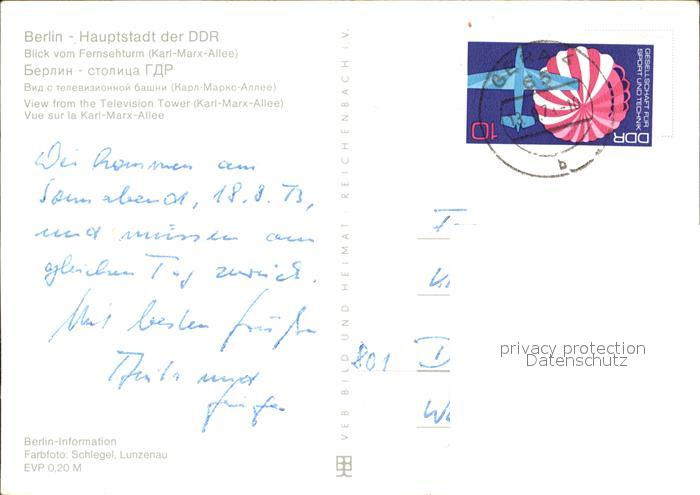 Berlin - Hauptstadt der DDR
Blick vom Fernsehturm (Karl-Marx-Allee)
Берлин - столица ГДР
Вид с телевизионной башни (Карл-Маркс-Аллее)
View from the Television Tower (Karl-Marx-Allee)
Vue sur la Karl-Marx-Allee
Wir kommen am
Sonnabend, 18.8.73,
und müssen am
gleichen Tag zurück.
Mit besten Grüßen
und
Berlin-Information
Farbfoto: Schlegel, Lunzenau
EVP 0,20 M
VEB BILD UND HEIMAT · REICHENBACH i. V.
GESELLSCHAFT FÜR
SPORT UND TECHNIK
DDR
10
GERA
65
b
801 D
privacy protection
Datenschutz